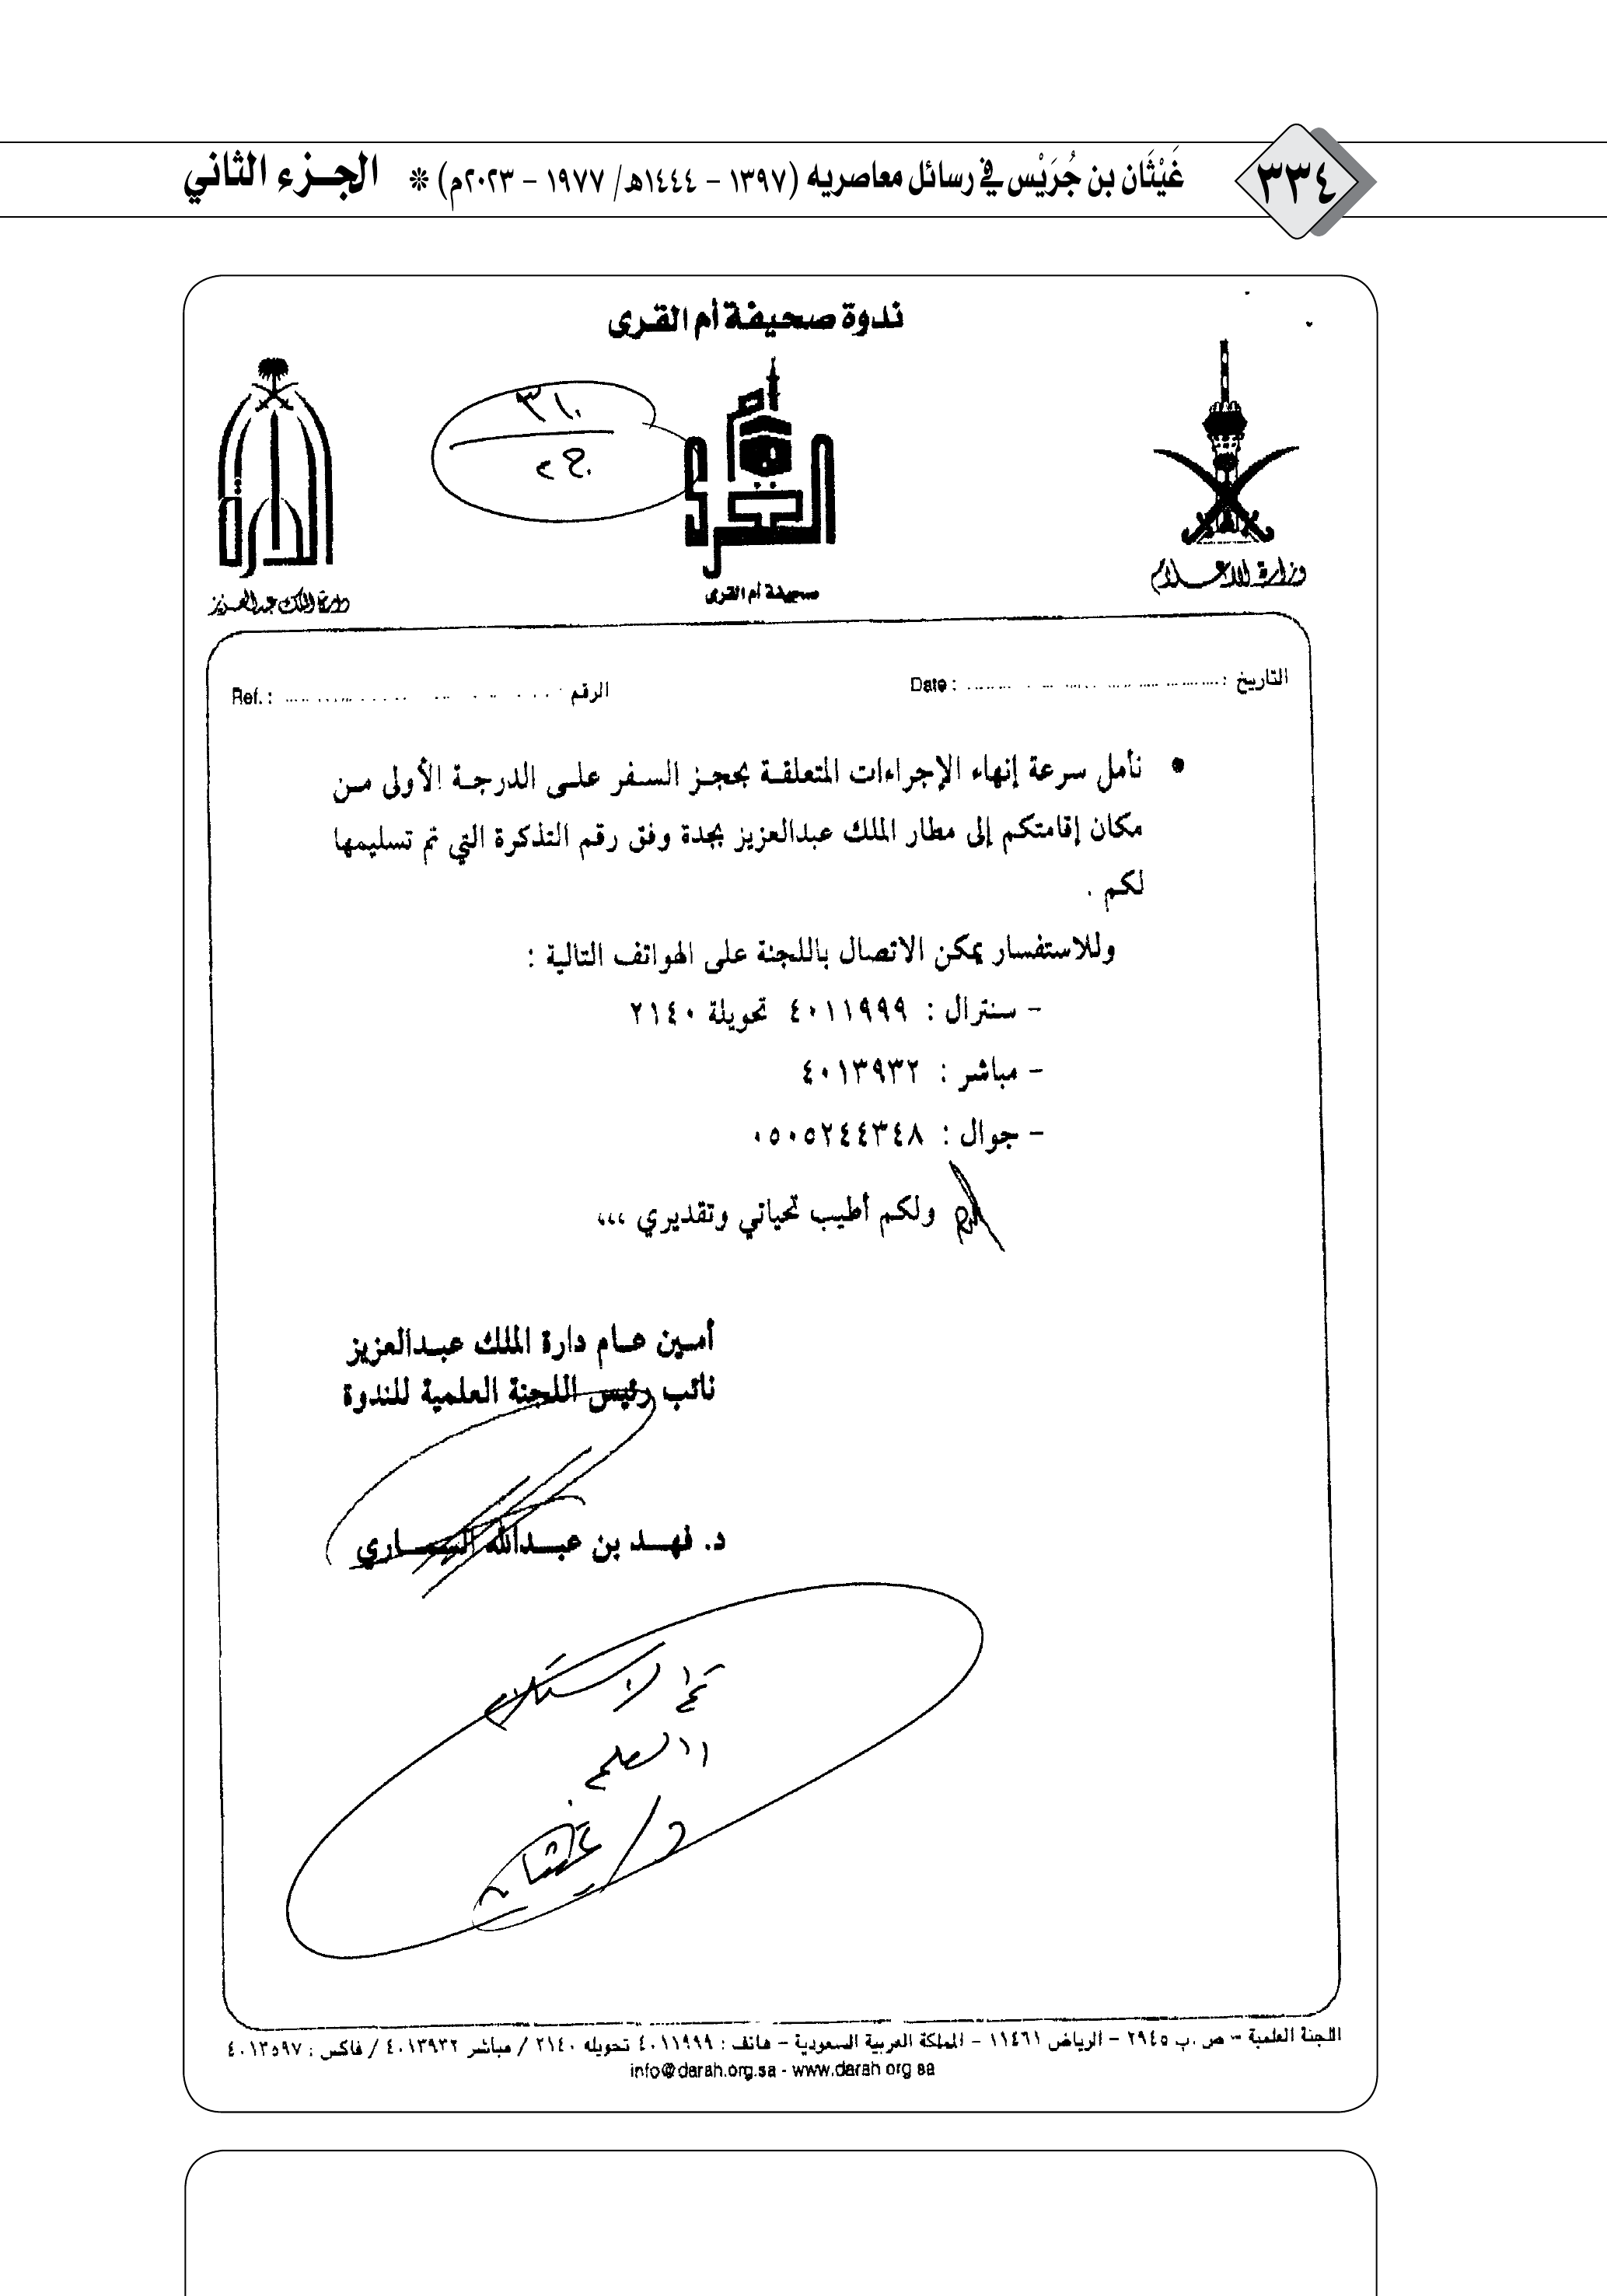 ٣٣٤
غَيْثَان بن جُرَيْس في رسائل معاصريه (١٣٩٧ - ١٤٤٤هـ/ ١٩٧٧ - ٢٠٢٣م) * الجـزء الثاني
ندوة صحيفة أم القرى
أم القرى
صحيفة أم القرى
وزارة الاعلام
الدارة
دارة الملك عبدالعزيز
التاريخ : Date :
الرقم Ref. :
• نأمل سرعة إنهاء الإجراءات المتعلقة بحجز السفر على الدرجة الأولى من
مكان إقامتكم إلى مطار الملك عبدالعزيز بجدة وفق رقم التذكرة التي تم تسليمها
لكم .
وللاستفسار يمكن الاتصال باللجنة على الهواتف التالية :
- سنترال : ٤٠١١٩٩٩ تحويلة ٢١٤٠
- مباشر : ٤٠١٣٩٣٢
- جوال : ٠٥٠٥٢٤٤٣٤٨
ولكم أطيب تحياتي وتقديري ،،،
أمين عام دارة الملك عبدالعزيز
نائب رئيس اللجنة العلمية للندوة
د. فهد بن عبدالله السماري
تم الاستلام
د/ غيثان
اللجنة العلمية - ص .ب ٢٩٤٥ - الرياض ١١٤٦١ - المملكة العربية السعودية - هاتف : ٤٠١١٩٩٩ تحويله ٢١٤٠ / مباشر ٤٠١٣٩٣٢ / فاكس : ٤٠١٣٥٩٧
info@darah.org.sa - www.darah org sa